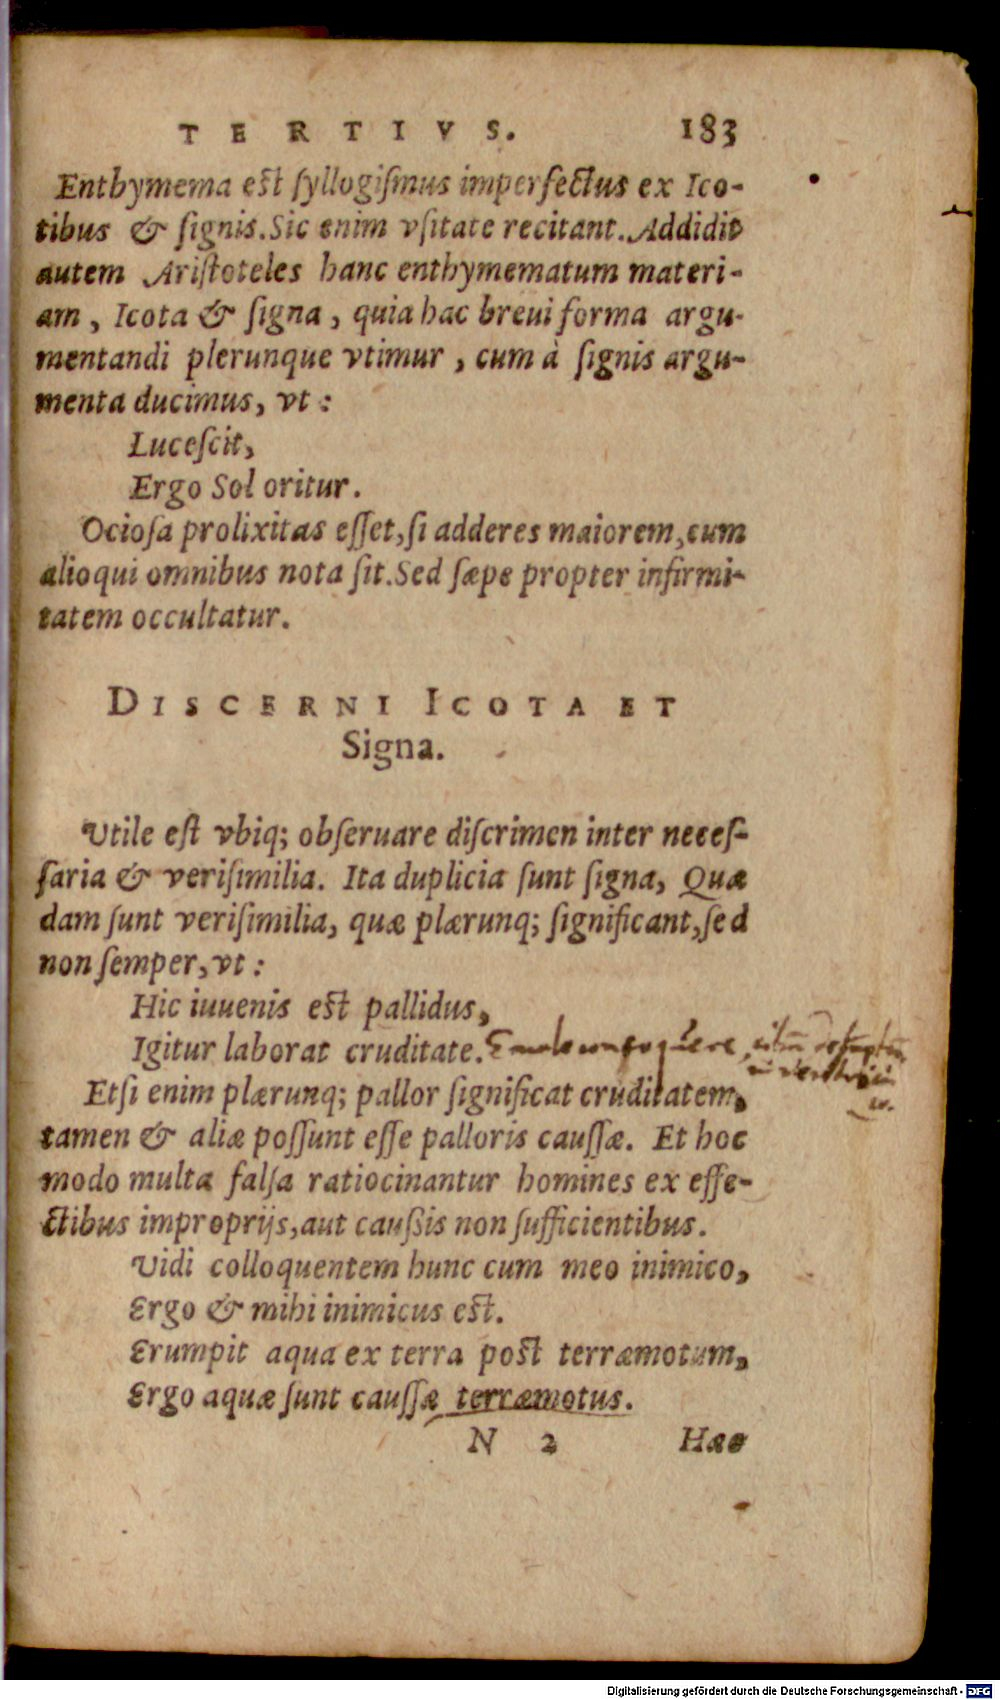 TERTIVS. 183
Enthymema est syllogiſmus imperfectus ex Ico-
tibus & ſignis. Sic enim vſitate recitant. Addidit
autem Ariſtoteles hanc enthymematum materi-
am, Icota & ſigna, quia hac breui forma argu-
mentandi plerunque vtimur, cum à ſignis argu-
menta ducimus, vt:
Luceſcit,
Ergo Sol oritur.
Ocioſa prolixitas eſſet, ſi adderes maiorem, cum
alioqui omnibus nota ſit. Sed ſæpe propter infirmi-
tatem occultatur.
DISCERNI ICOTA ET
Signa.
Vtile eſt vbiq; obſeruare diſcrimen inter neceſ-
ſaria & veriſimilia. Ita duplicia ſunt ſigna, Quæ
dam ſunt veriſimilia, quæ plærunq; ſignificant, ſed
non ſemper, vt:
Hic iuuenis eſt pallidus,
Igitur laborat cruditate.
Etſi enim plærunq; pallor ſignificat cruditatem,
tamen & aliæ poſſunt eſſe palloris cauſſæ. Et hoc
modo multa falſa ratiocinantur homines ex effe-
ctibus improprijs, aut cauſsis non ſufficientibus.
Vidi colloquentem hunc cum meo inimico,
Ergo & mihi inimicus eſt.
Erumpit aqua ex terra poſt terræmotum,
Ergo aquæ ſunt cauſſæ terræmotus.
N 2 Hæc
Digitalisierung gefördert durch die Deutsche Forschungsgemeinschaft - DFG